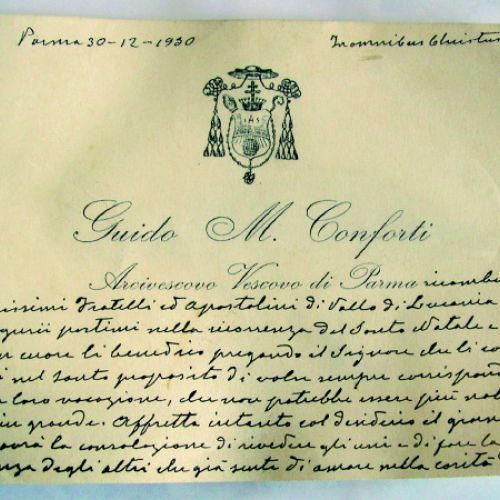 Parma 30-12-1930 In omnibus Christus
IHS
Guido M. Conforti
Arcivescovo Vescovo di Parma ricambia
issimi Fratelli ed Apostolini di Vallo di Lucania
gurii portimi nella ricorrenza del Santo Natale e
cuore li benedico pregando il Signore che li co
nel santo proposito di voler sempre corrispond
loro vocazione, che non potrebbe essere più nob
grande. Affretta intanto col desiderio il giorno
avrà la consolazione di rivedere gli uni e di fare la
nza degli altri che già sente di amare nella carità